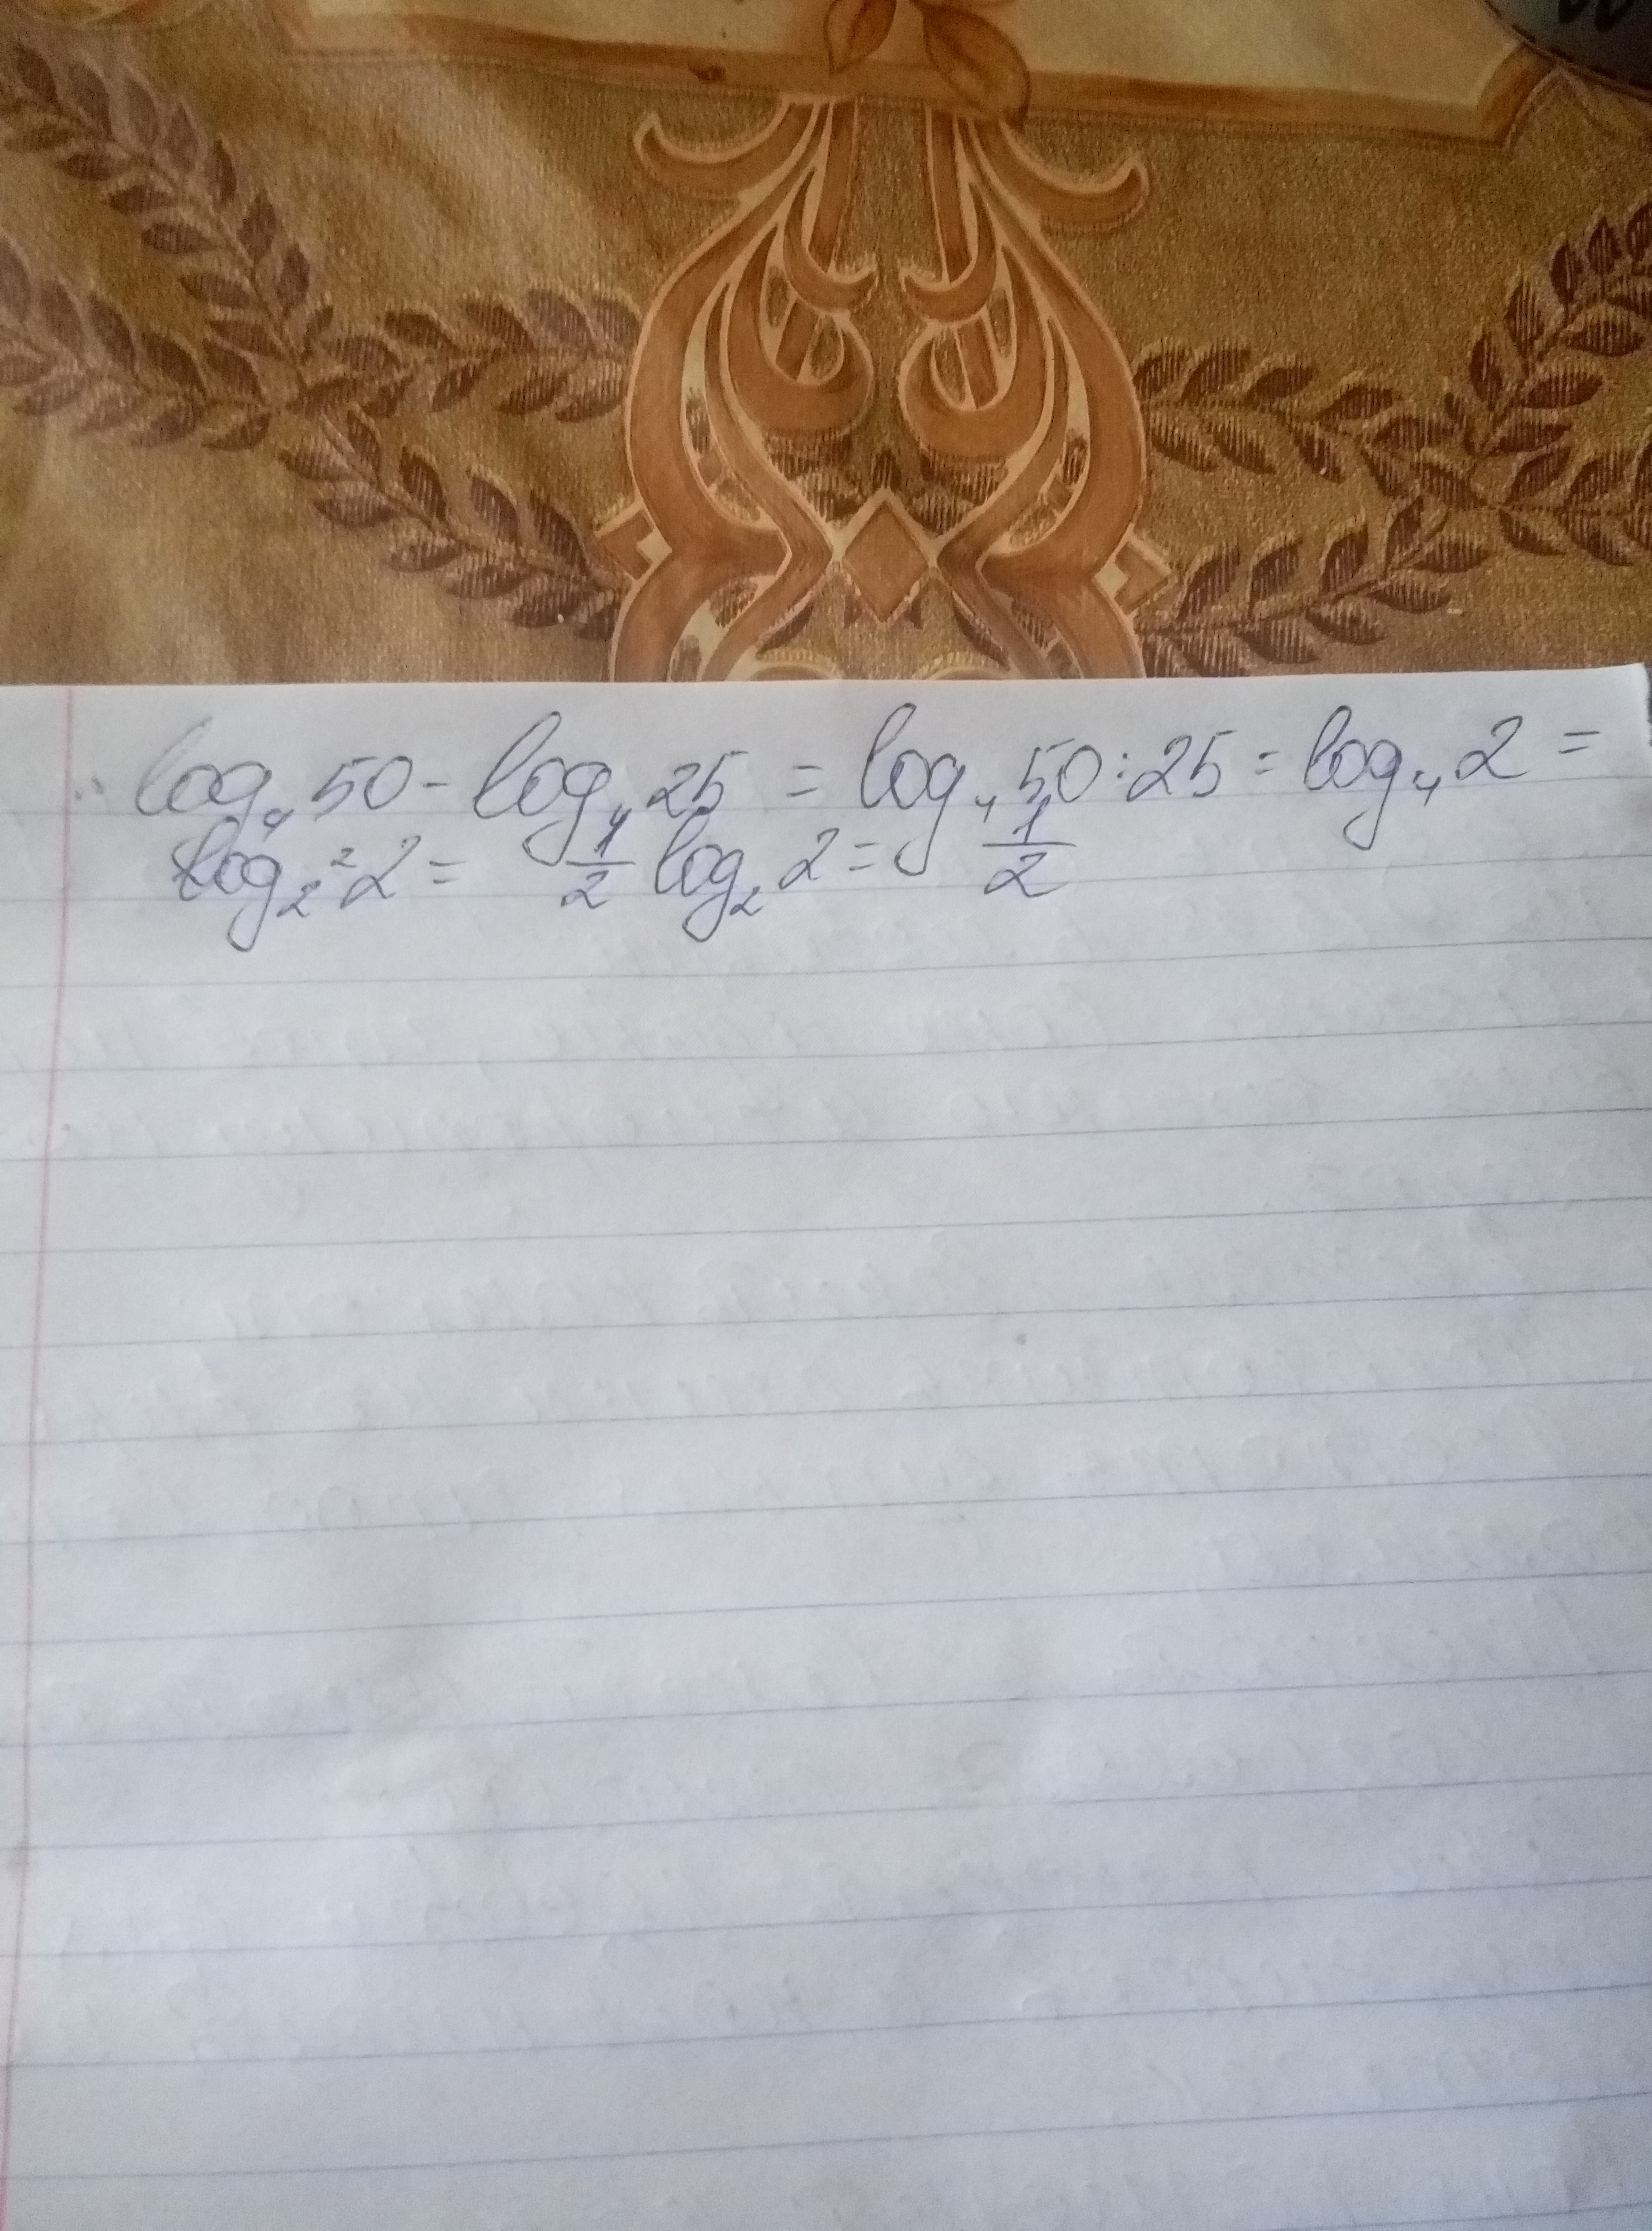 log₄ 50 - log₄ 25 = log₄ 50 : 25 = log₄ 2 =
log₂² 2 = 1/2 log₂ 2 = 1/2